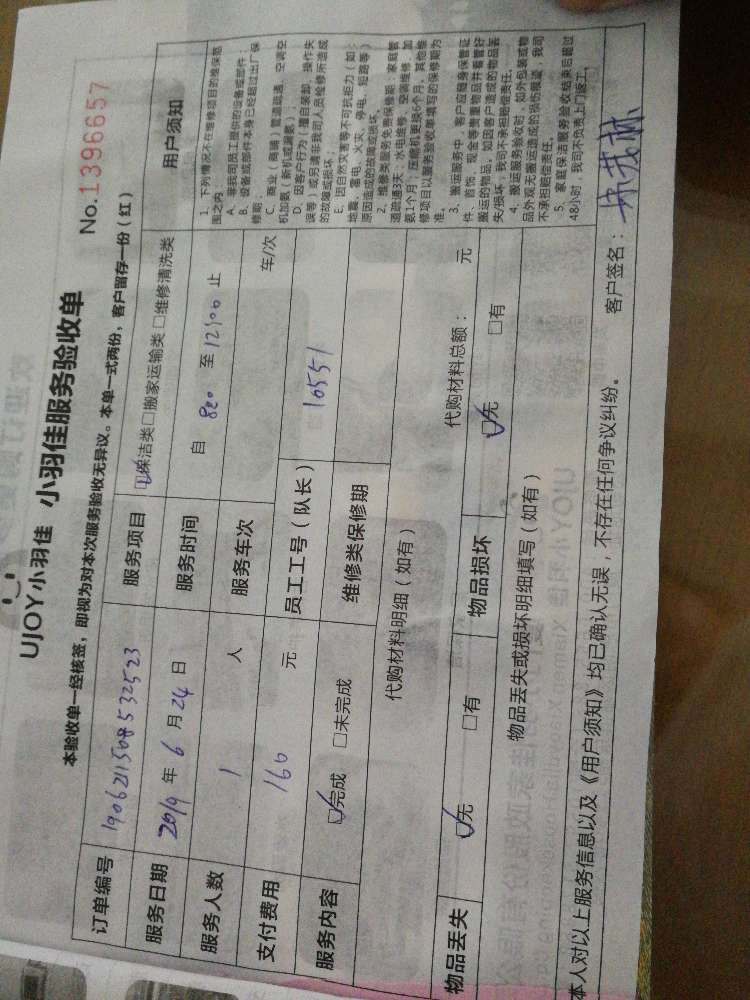 UJOY小羽佳 小羽佳服务验收单
No.1396657
本验收单一经核签，即视为对本次服务验收无异议。本单一式两份，客户留存一份（红）
订单编号 190621508532523 服务项目 保洁类 □搬家运输类 □维修清洗类
服务日期 2019 年 6 月 24 日 服务时间 自 820 至 12:00 止
服务人数 1 人 服务车次 车/次
支付费用 160 元 员工工号（队长） 10551
服务内容 完成 □未完成 维修类保修期
代购材料明细（如有） 代购材料总额： 元
物品丢失 无 □有 物品损坏 无 □有
物品丢失或损坏明细填写（如有）
用户须知
1、下列情况不在维修项目的维保范
围之内
A、非我司员工提供的设备或部件；
B、设备或部件本身已经超过出厂保
修期；
C、商业（商铺）管道疏通、空调空
机加氨（新机或漏氨）；
D、因客户行为（擅自装卸、操作失
误等）或另请非我司人员检修所造成
的故障或损坏；
E、因自然灾害等不可抗拒力（如：
地震、雷电、火灾、停电、短路等）
原因造成的故障或损坏。
2、维修类服务免费保修期：家庭管
道疏通3天，水电维修、空调维修、加
氨1个月；压缩机更换6个月，其他维
修项目以服务验收单填写的保修期为
准。
3、搬运服务中，客户应随身保管证
件、首饰、现金等贵重物品并看管好
搬运的物品，如因客户造成的物品丢
失/损坏，我司不承担赔偿责任。
4、搬运服务验收时，如外包装或物
品外观无搬运造成的损伤痕迹，我司
不承担赔偿责任。
5、家庭保洁服务验收结束后超过
48小时，我司不负责上门返工。
本人对以上服务信息以及《用户须知》均已确认无误，不存在任何争议纠纷。 客户签名：